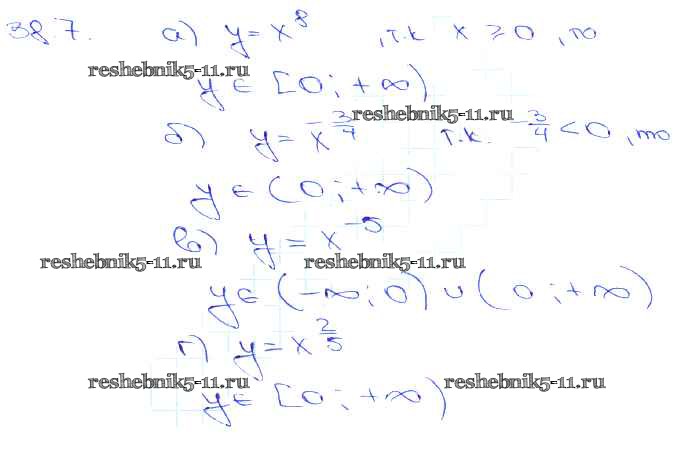 38.7. а) y = x^8 , т.к x ≥ 0 , то
reshebnik5-11.ru
y ∈ [0 ; + ∞)
reshebnik5-11.ru
б) y = x^{-3/4} т.к. -3/4 < 0 , то
y ∈ (0 ; + ∞)
в) y = x^{-5}
reshebnik5-11.ru reshebnik5-11.ru
y ∈ (-∞ ; 0) ∪ (0 ; + ∞)
г) y = x^{2/5}
reshebnik5-11.ru reshebnik5-11.ru
y ∈ [0 ; + ∞)